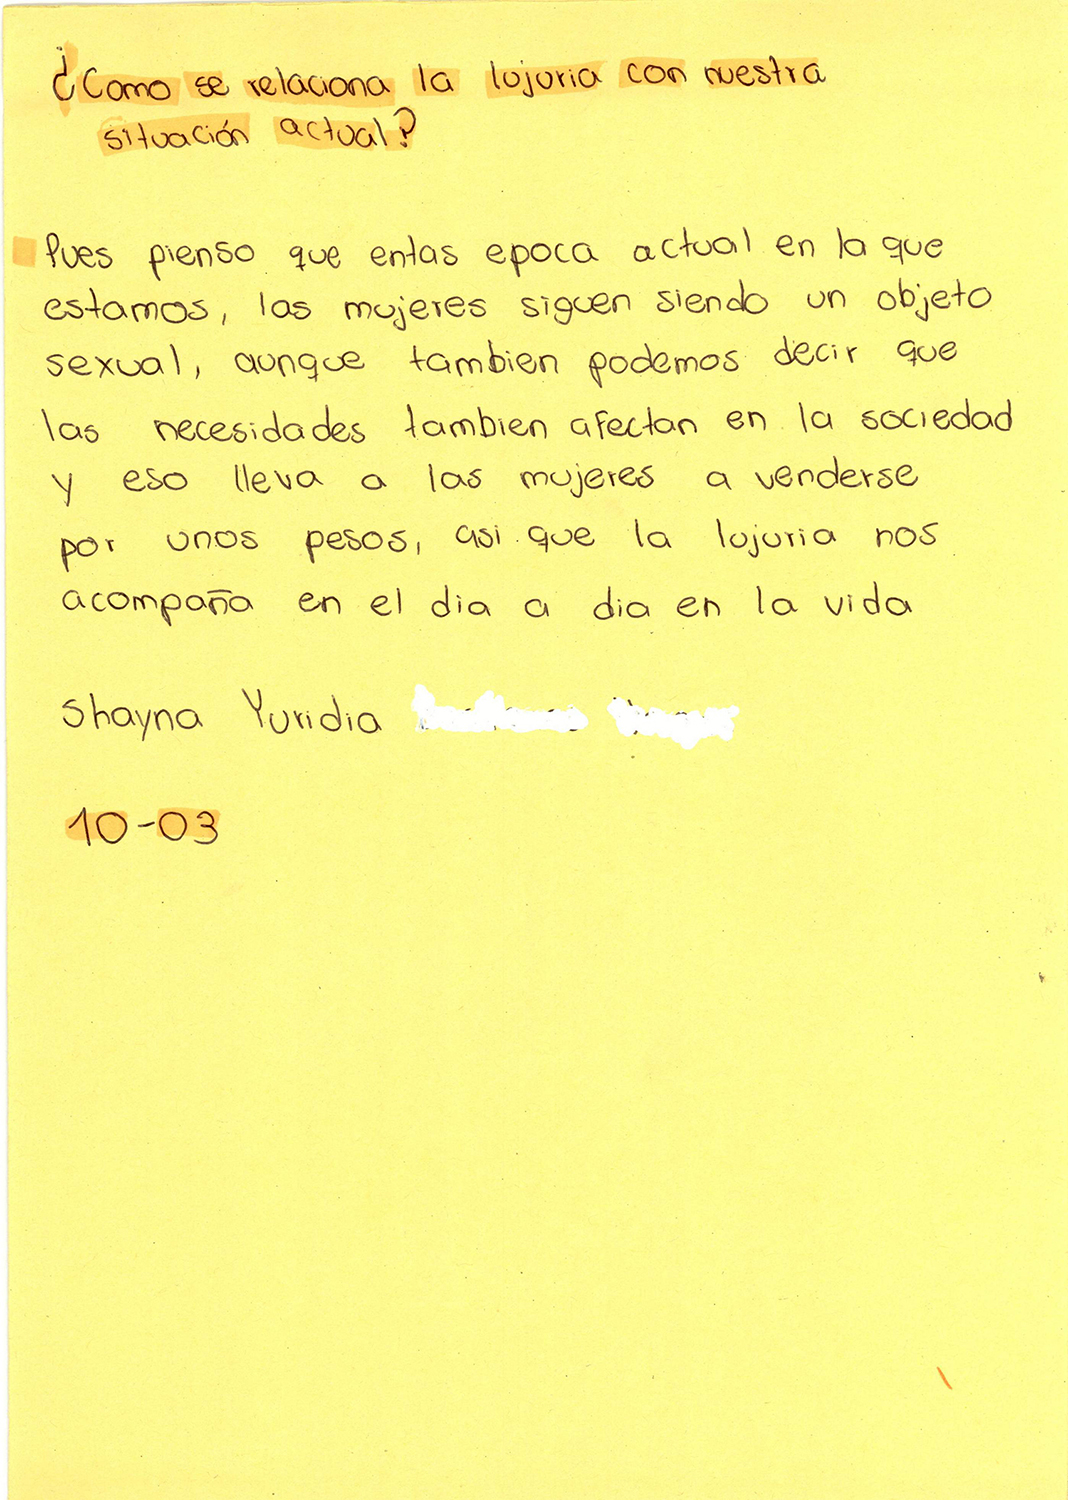 ¿Como se relaciona la lujuria con nuestra
situación actual?
Pues pienso que entas epoca actual en la que
estamos, las mujeres siguen siendo un objeto
sexual, aunque tambien podemos decir que
las necesidades tambien afectan en la sociedad
y eso lleva a las mujeres a venderse
por unos pesos, asi que la lujuria nos
acompaña en el dia a dia en la vida
Shayna Yuridia
10-03